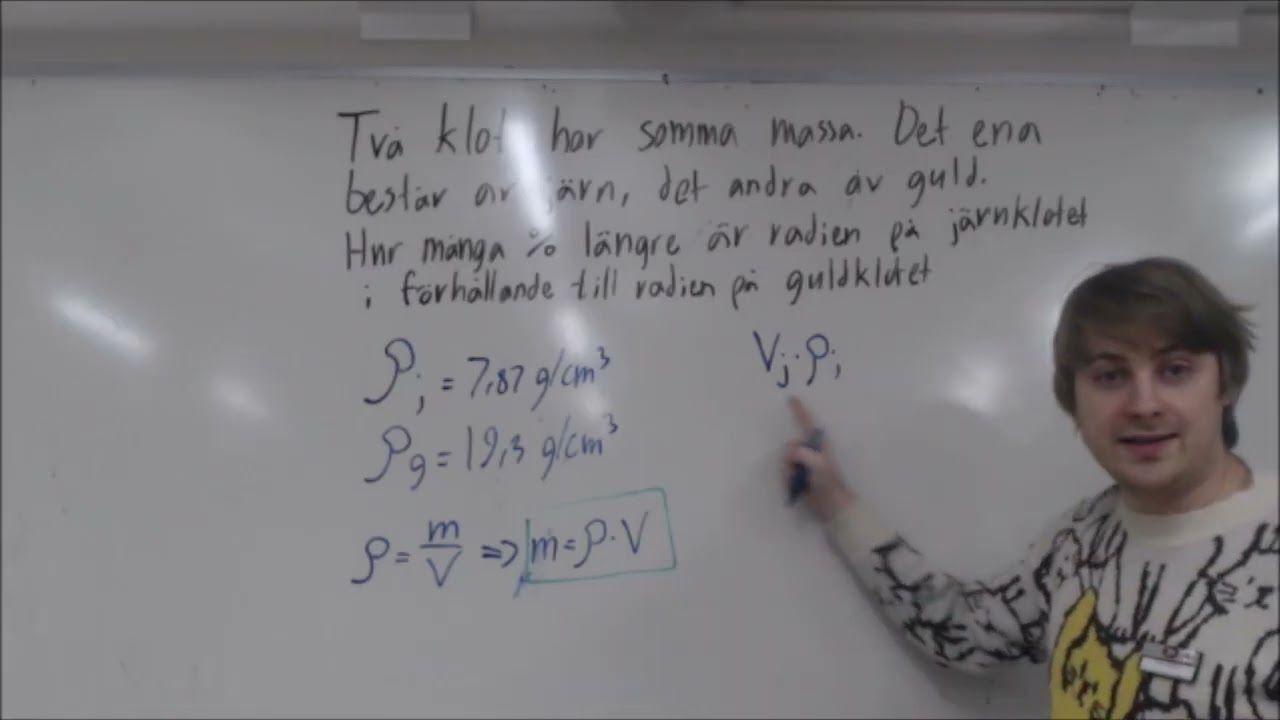 Två klot har samma massa. Det ena
består av järn, det andra av guld.
Hur många % längre är radien på järnklotet
i förhållande till radien på guldklotet
ρj = 7,87 g/cm³
Vj · ρj
ρg = 19,3 g/cm³
ρ = m/V ⇒ m = ρ · V